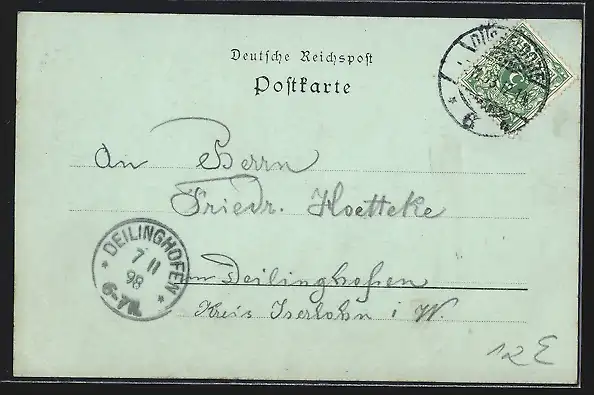 Deutsche Reichspost
Postkarte
An Herrn
Friedr. Hoetteke
in Deilinghofen
Kreis Iserlohn i. W.
DEILINGHOFEN
7 11
98
6-7N.
12 E